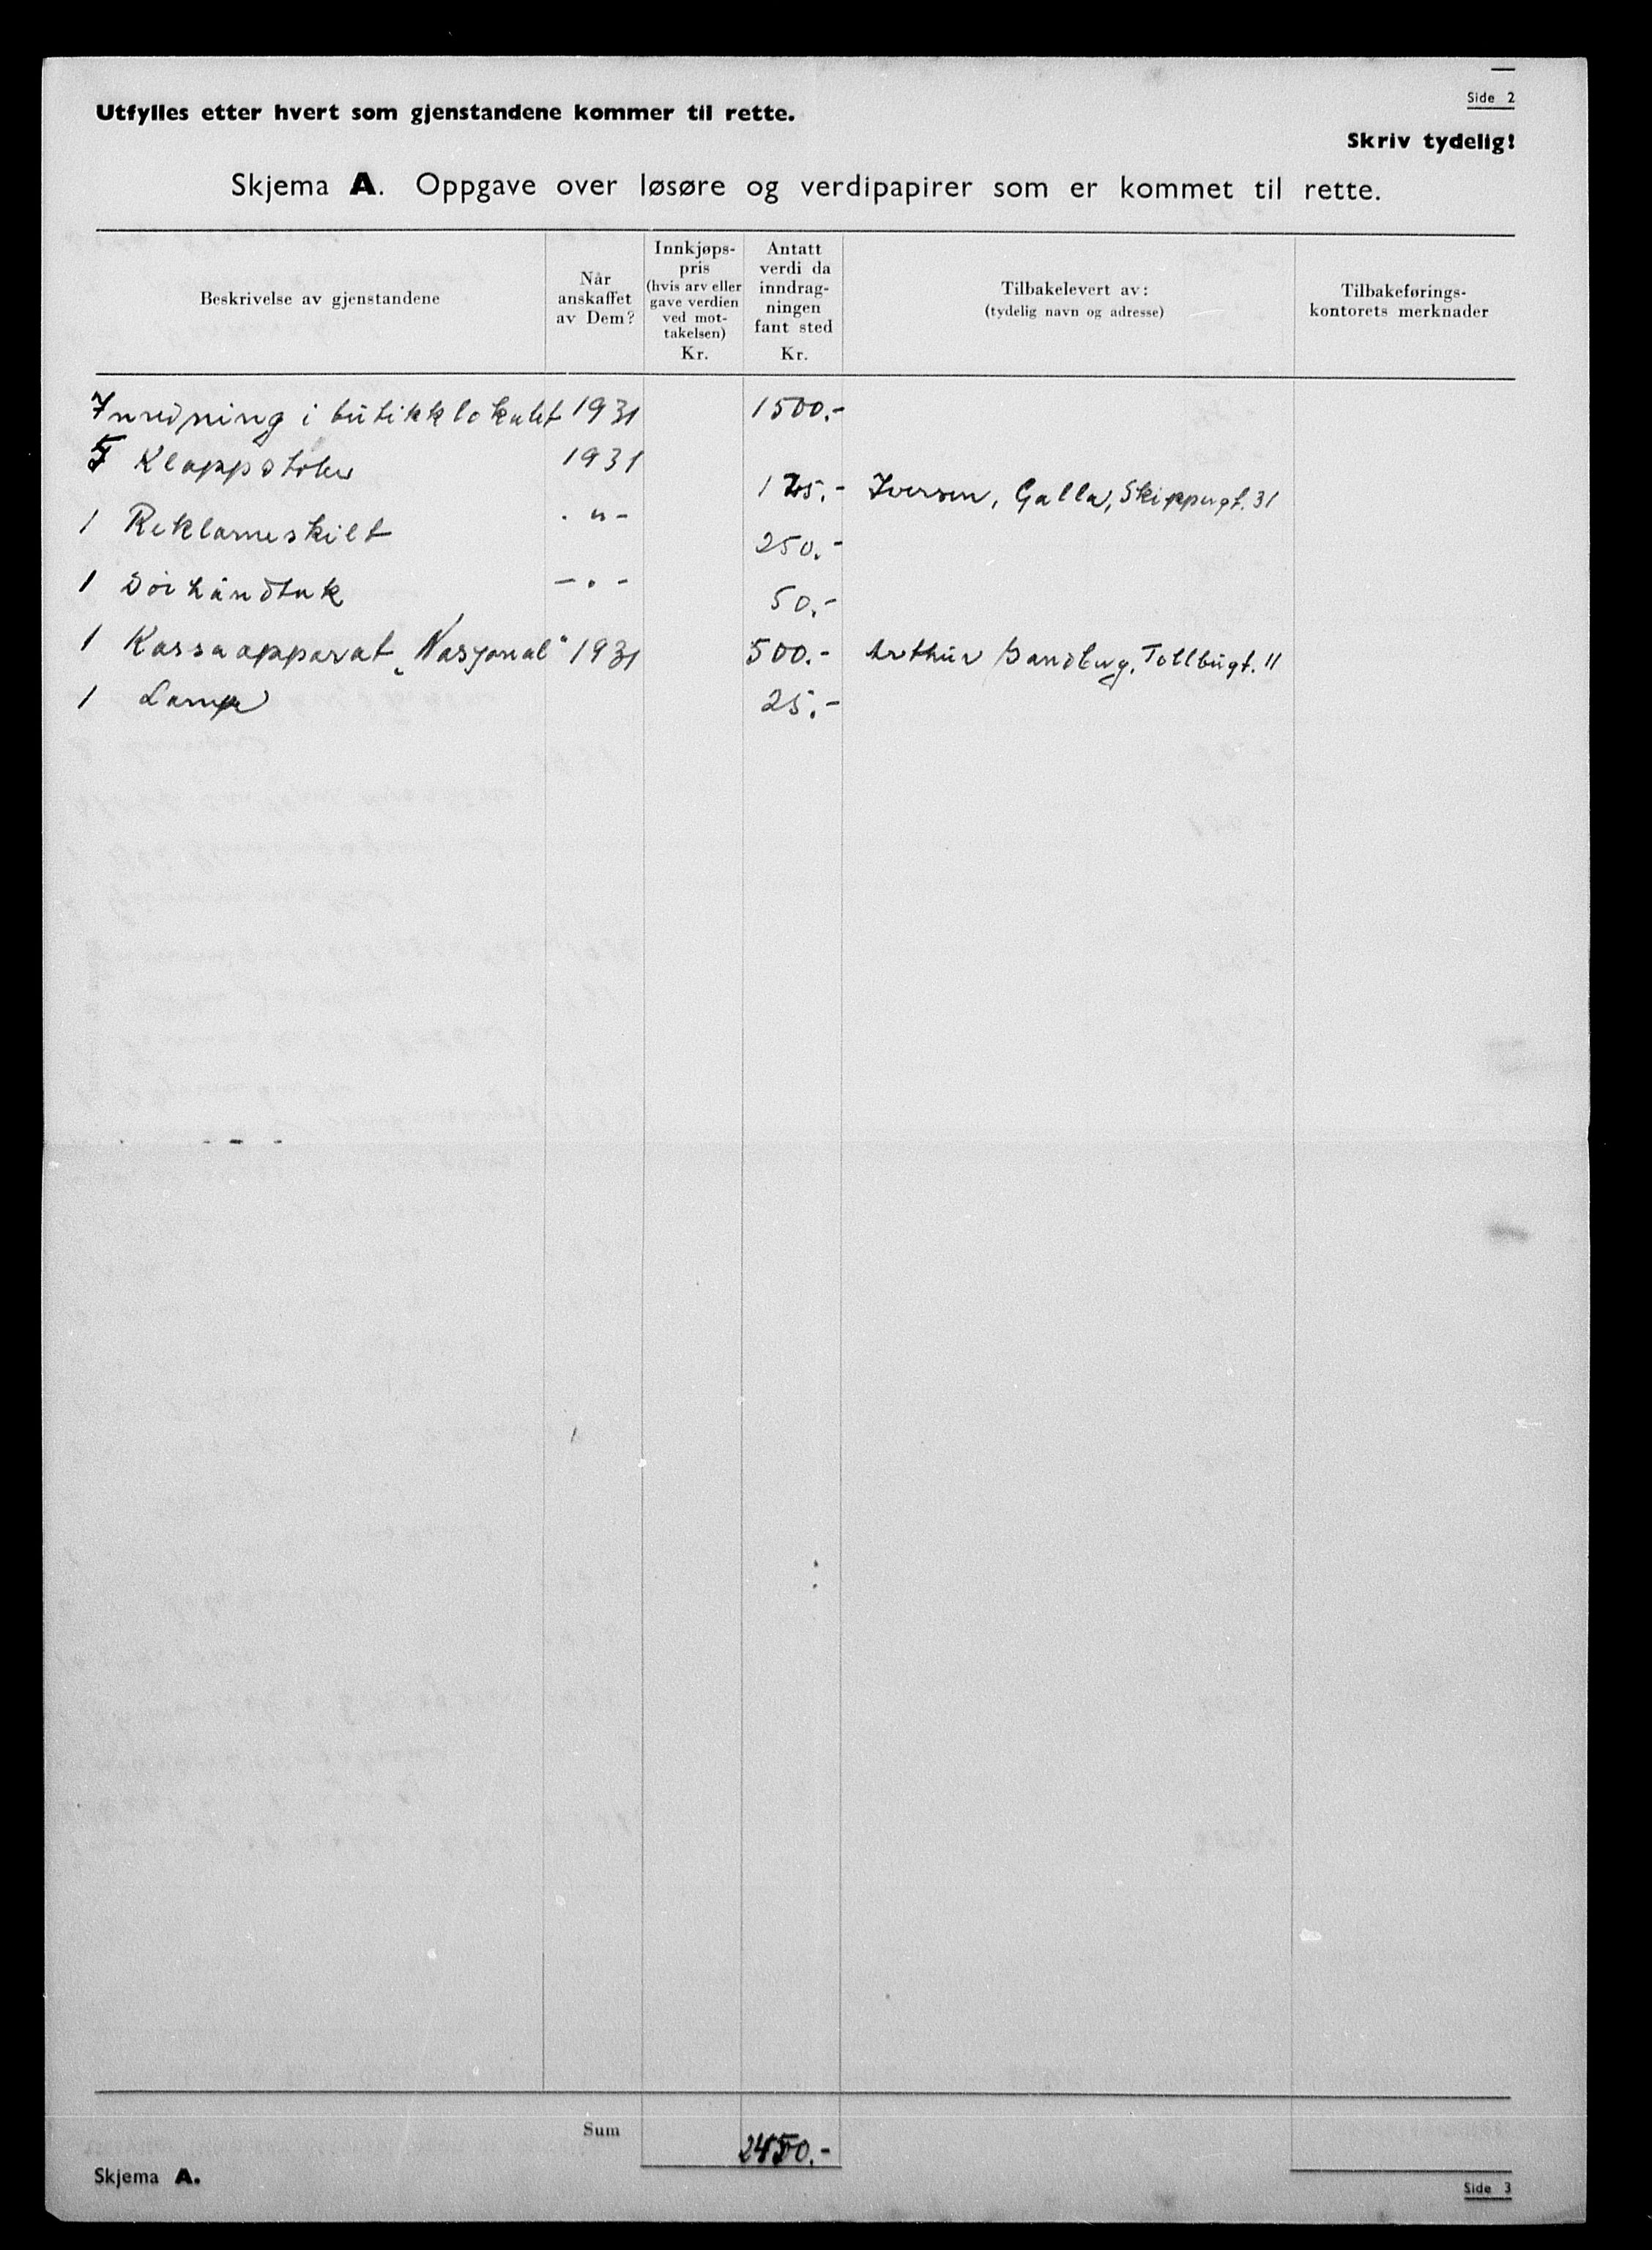 Side 2
Utfylles etter hvert som gjenstandene kommer til rette.
Skriv tydelig!
Skjema A. Oppgave over løsøre og verdipapirer som er kommet til rette.
Beskrivelse av gjenstandene
Når anskaffet av Dem?
Innkjøps-pris (hvis arv eller gave verdien ved mot-takelsen) Kr.
Antatt verdi da inndrag-ningen fant sted Kr.
Tilbakelevert av: (tydelig navn og adresse)
Tilbakeførings-kontorets merknader
Inredning i butikklokalet 1931 1500.-
5 Klappstoler 1931 125.- Iversen, Galla, Skippergt. 31
1 Reklameskilt - " - 250.-
1 Dörhåndtak - " - 50.-
1 Kassaapparat „Nasjonal" 1931 500.- Arthur Sandberg, Tollbugt. 11
1 Lampe 25.-
Sum 2450.-
Skjema A.
Side 3